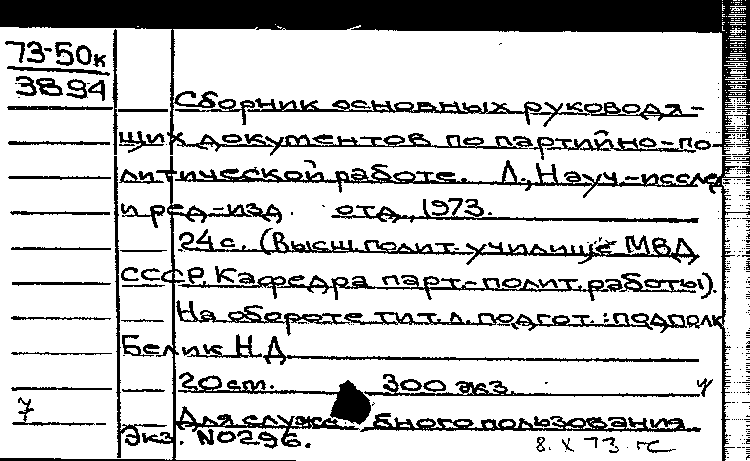 73-50к
3894
Сборник основных руководя-
щих документов по партийно-по-
литической работе. Л., Науч.-исслед
и ред.-изд. отд., 1973.
24 с. (Высш. полит. училище МВД
СССР. Кафедра парт.-полит. работы).
На обороте тит. л. подгот.: подполк
Белик Н.Д
20 см. 300 экз. ч
7 Для служебного пользования
Экз. №0296. 8. X 73 гс